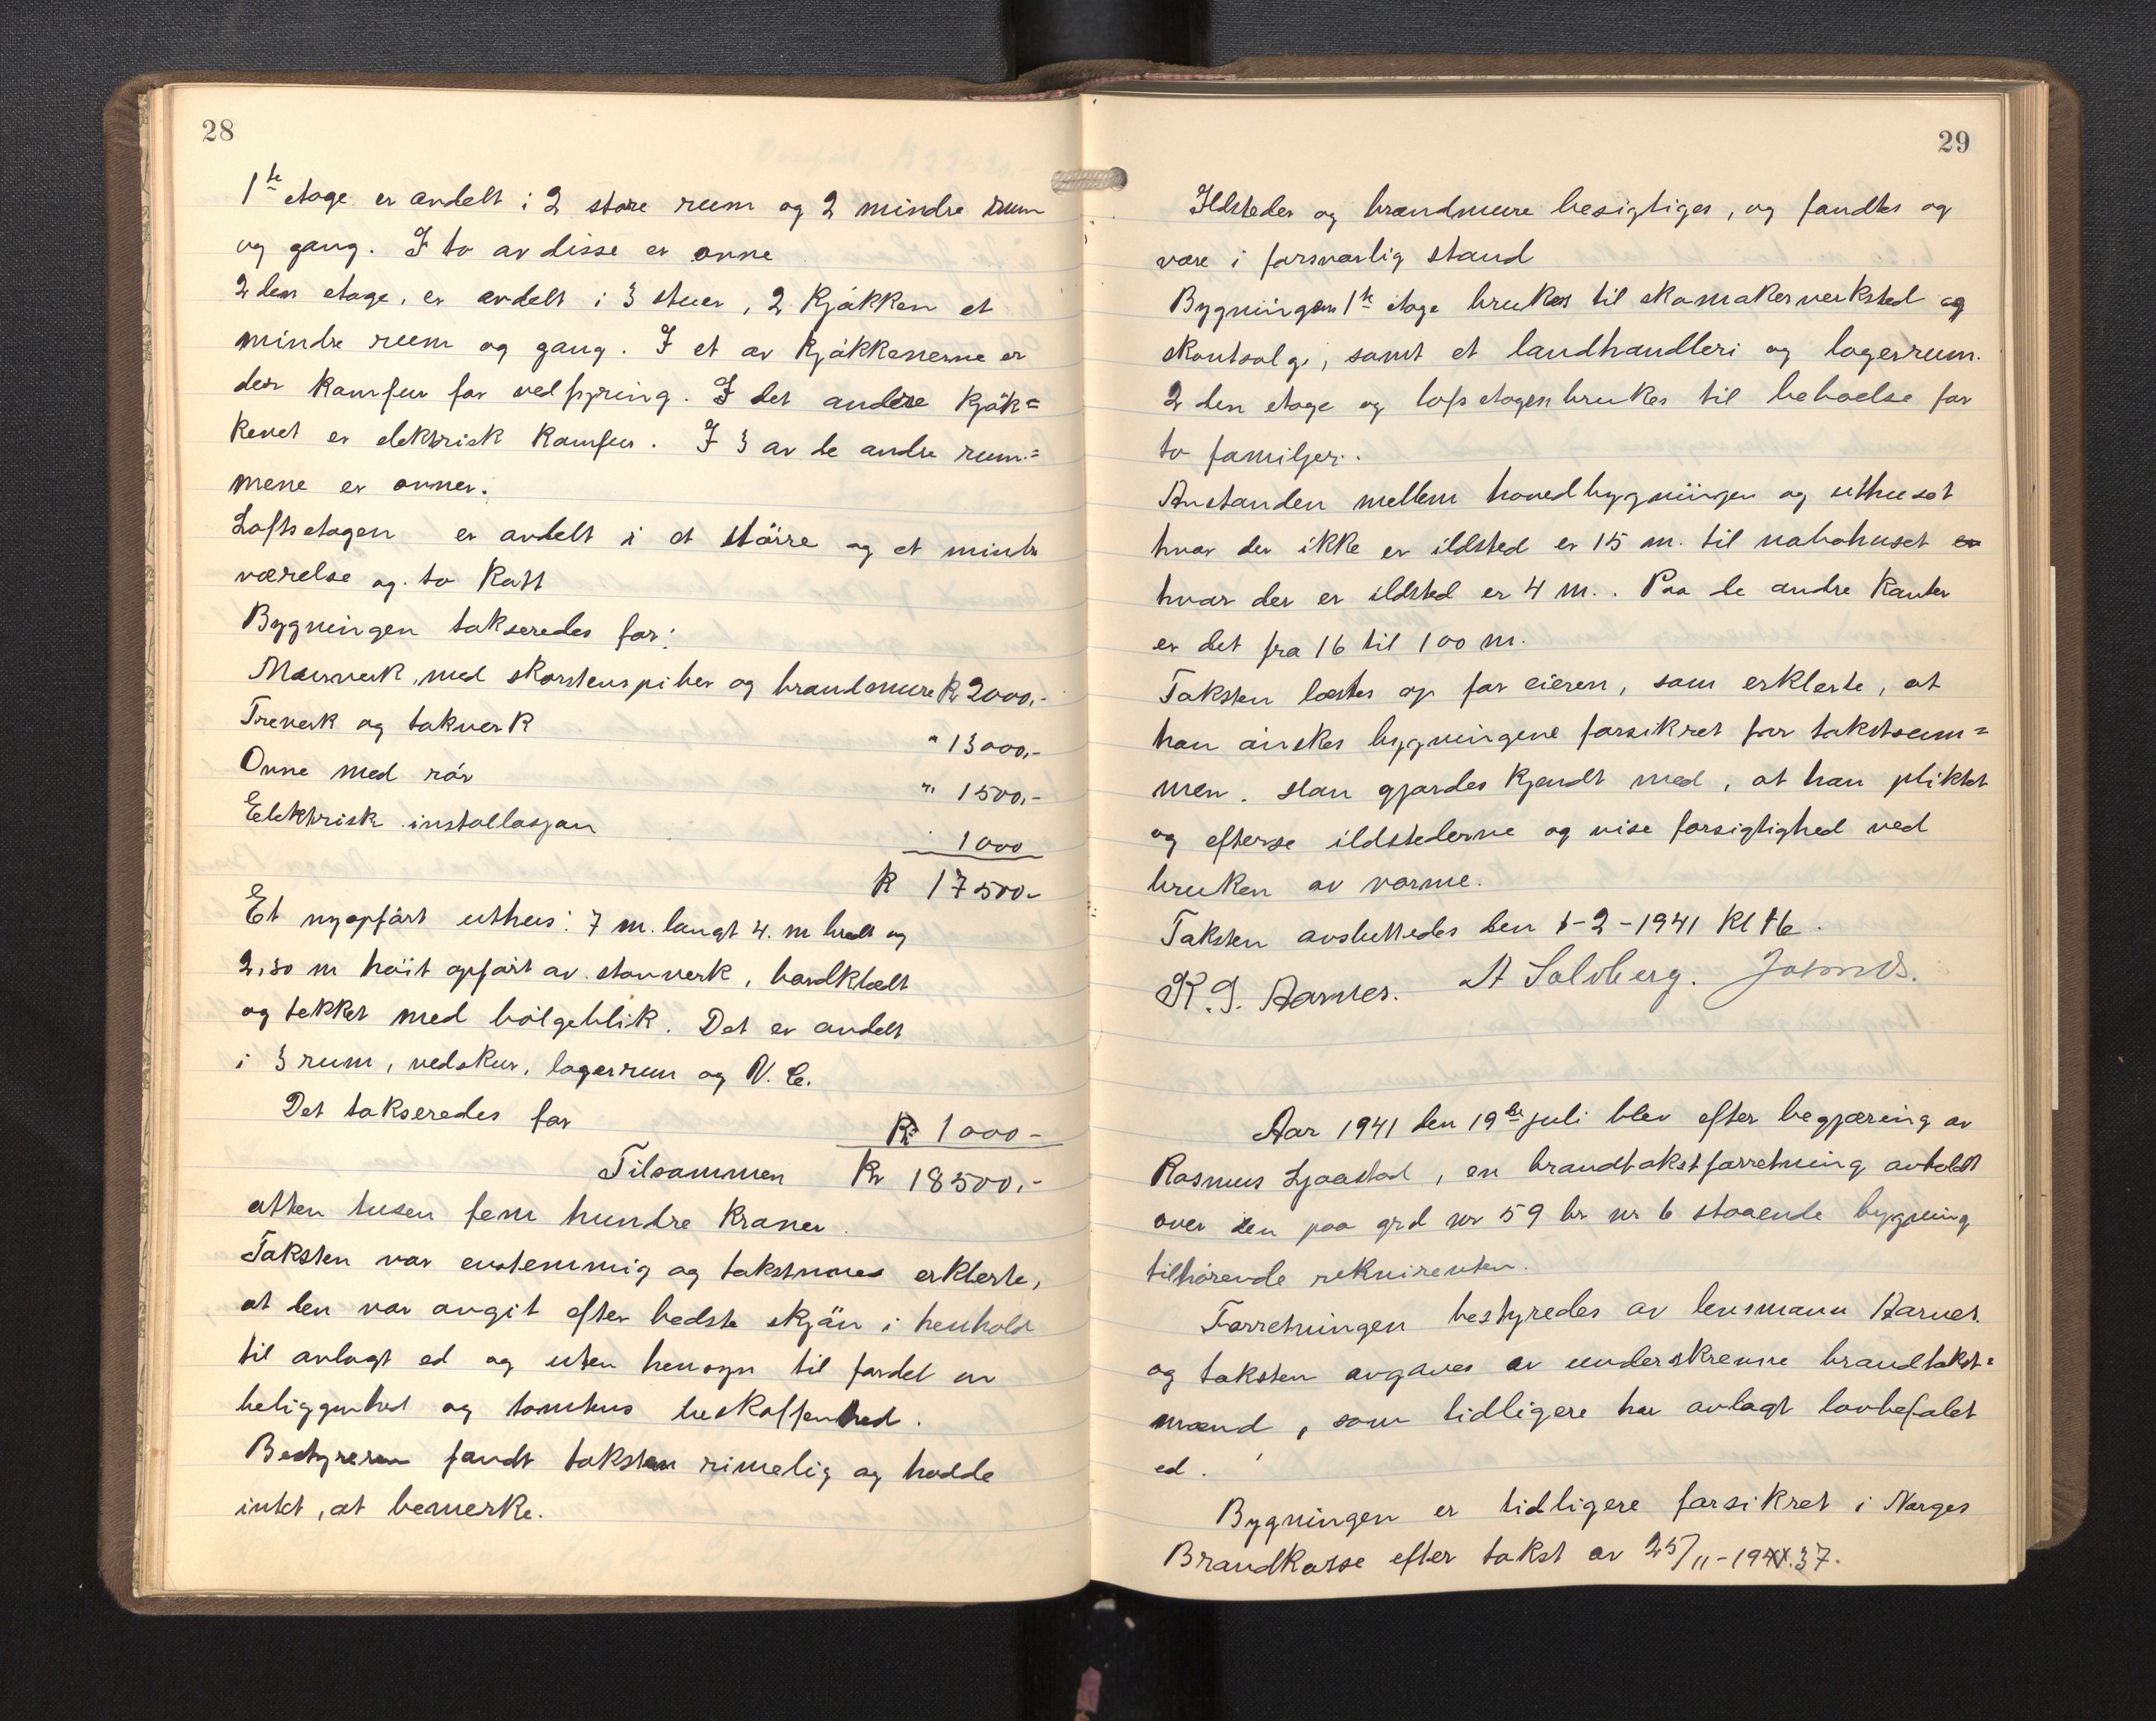 28
1ste etage er avdelt i 2 store rum og 2 mindre rum
og gang. I to av disse er ovne
2den etage, er avdelt i 3 stuer, 2 Kjøkken et
mindre rum og gang. I et av Kjøkkenerne er
der Komfur for vedfyring. I det andre Kjøk=
kenet er elektrisk Komfur. I 3 av de andre rum=
mene er ovner.
Loftsetagen er avdelt i et större og et mindre
værelse og to Kott
Bygningen takseredes for:
Murverk, med skorstenspiber og brandmure Kr 2000,-
Treverk og takverk " 13000,-
Ovne med rör " 1500,-
Elektrisk installasjon 1000
K 17500-
Et nyopfört uthus: 7 m. langt 4. m bredt og
2,50 m höit opfört av stavverk, bordklædt
og tekket med bölgeblik. Det er avdelt
i 3 rum, vedskur, lagerrum og V. C.
Det takseredes for Kr 1000-
Tilsammen Kr 18500,-
atten tusen fem hundre Kroner.
Taksten var enstemmig og takstmenn erklerte,
at den var avgit efter bedste skjön i henhold
til avlagt ed og uten hensyn til fordel av
beliggenhed og tomtens beskaffenhed.
Bestyreren fandt taksten rimelig og hadde
intet, at bemerke.
29
Ildsteder og brandmure besigtiges, og fandtes og
være i forsvarlig stand
Bygningens 1ste etage brukes til skomakerverksted og
skoutsalg, samt et landhandleri og lagerrum.
2den etage og lofsetagen brukes til beboelse for
to familjer.
Avstanden mellem hovedbygningen og uthuset
hvor der ikke er ildsted er 15 m. til nabohuset er
hvor der er ildsted er 4 m.. Paa de andre Kanter
er det fra 16 til 100 m.
Taksten læstes op for eieren, som erklerte, at
han önsker bygningene forsikret for takstsum=
men. Han gjordes Kjendt med, at han pliktet
og efterse ildstederne og vise forsigtighed ved
bruken av varme.
Taksten avsluttedes den 1-2-1941 Kl 16.
K. J. Aarnes. A Solvberg.
Aar 1941 den 19de juli blev efter begjæring av
Rasmus Ljaastad, en brandtakstforretning avholdt
over den paa grd nr 59 br nr 6 staaende bygning
tilhörende rekvirenten.
Forretningen bestyredes av lensmann Aarnes.
og taksten avgaves av underskrevne brandtakst=
mænd, som tidligere har avlagt lovbefalet
ed.
Bygningen er tidligere forsikret i Norges
Brandkasse efter takst av 25/11-1937.